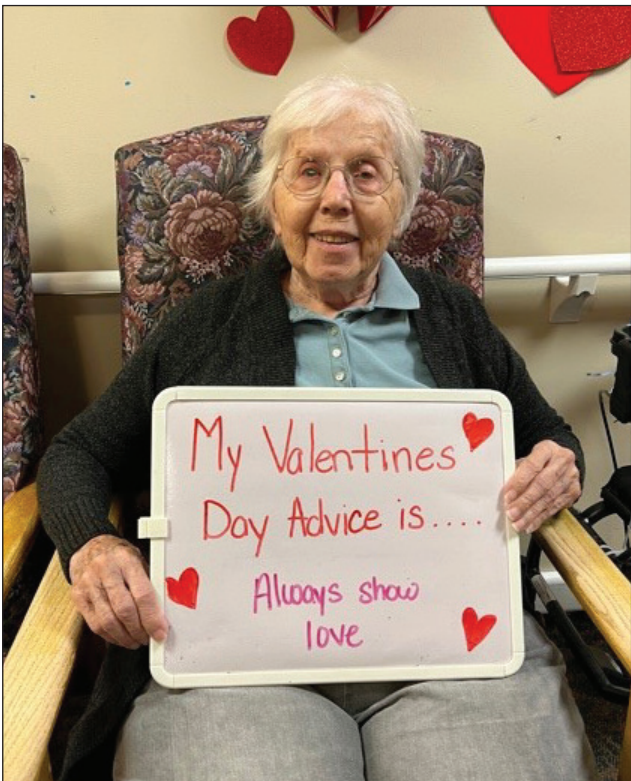 My Valentines
Day Advice is....
Always show
love